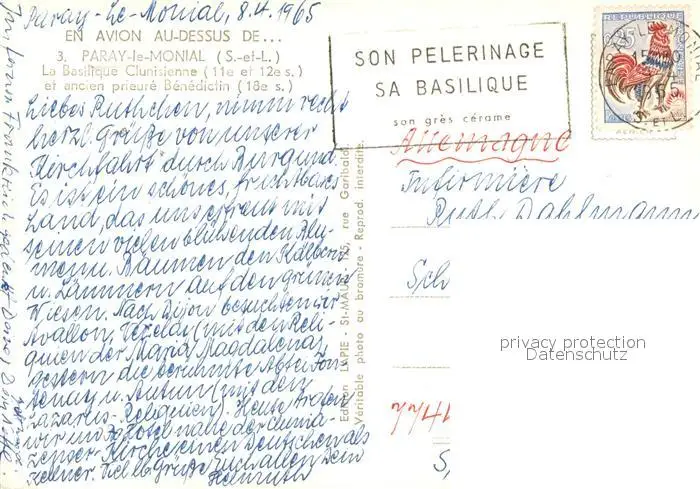 Paray-Le-Monial, 8.4.1965
EN AVION AU-DESSUS DE...
3. PARAY-le-MONIAL (S.-et-L.)
La Basilique Clunisienne (11e et 12e s.)
et ancien prieuré Bénédictin (18e s.)
Liebes Ruthchen, nimm recht
herzl. Grüße von unserer
Kirchfahrt durch Burgund.
Es ist ein schönes, fruchtbares
Land, das uns erfreut mit
seinen vielen blühenden Blu-
men u. Bäumen den Kälbern
u. Lämmern auf den grünen
Wiesen. Nach Dijon besuchten wir
Avallon, Vezelay (mit den Reli-
quien der Maria Magdalena),
gestern die berühmte Abtei Fon-
tenay u. Autun (mit den
Lazarus-Reliquien). Heute trafen
wir im Hotel nahe der Clunia-
zenser-Kirche einen Deutschen als
Kellner. Viel lb. Grüße Euch allen Dein
Helmuth
Edition LAPIE - St-MAUR - 175, rue Garibaldi
Véritable photo au bromure - Reprod. interdite.
SON PELERINAGE
SA BASILIQUE
son grès cérame
Allemagne
Infirmière
Ruth Dahlmann
Sch
privacy protection
Datenschutz